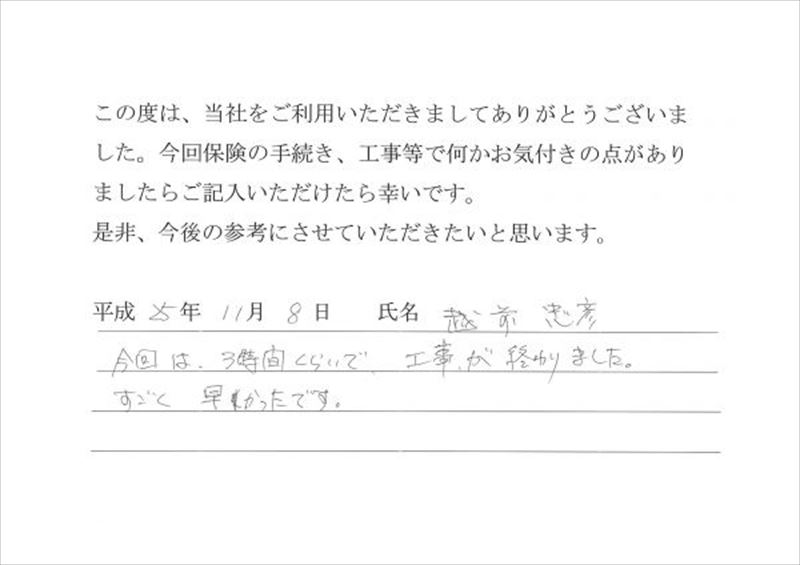 この度は、当社をご利用いただきましてありがとうございま
した。今回保険の手続き、工事等で何かお気付きの点があり
ましたらご記入いただけたら幸いです。
是非、今後の参考にさせていただきたいと思います。
平成 25年 11月 8日 氏名 越前 忠彦
今回は、3時間くらいで、工事が終わりました。
すごく 早かったです。